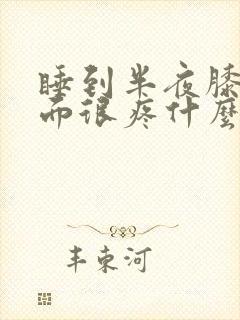 睡到半夜膝
而很疼什麼
丰東河